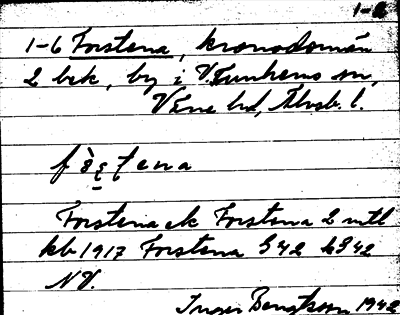 1-6 Forstena, kronodomän
2 bek, by i V. Tunhems sn,
V Ene hd, Älvsb. l.
Forstena ek Forstena 2 mtl
kb 1917 Forstena G42 hG42
NV.
Inger Bengtsson 1942